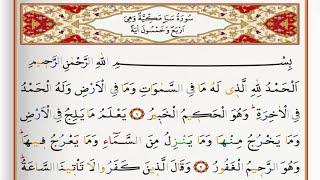 سُوْرَةُ سَبَاٍ مَكِّيَّةٌ وَهِىَ
اَرْبَعٌ وَخَمْسُوْنَ اٰيَةً
بِسْمِ اللّٰهِ الرَّحْمٰنِ الرَّحِيْمِ
اَلْحَمْدُ لِلّٰهِ الَّذِى لَهٗ مَا فِى السَّمٰوَاتِ وَمَا فِى الْاَرْضِ وَلَهُ الْحَمْدُ
فِى الْاٰخِرَةِۜ وَهُوَ الْحَكِيْمُ الْخَبِيْرُ ﴿١﴾ يَعْلَمُ مَا يَلِجُ فِى الْاَرْضِ
وَمَا يَخْرُجُ مِنْهَا وَمَا يَنْزِلُ مِنَ السَّمَٓاءِ وَمَا يَعْرُجُ فِيْهَاۜ
وَهُوَ الرَّحِيْمُ الْغَفُوْرُ ﴿٢﴾ وَقَالَ الَّذِيْنَ كَفَرُوْا لَا تَاْتِيْنَا السَّاعَةُۜ